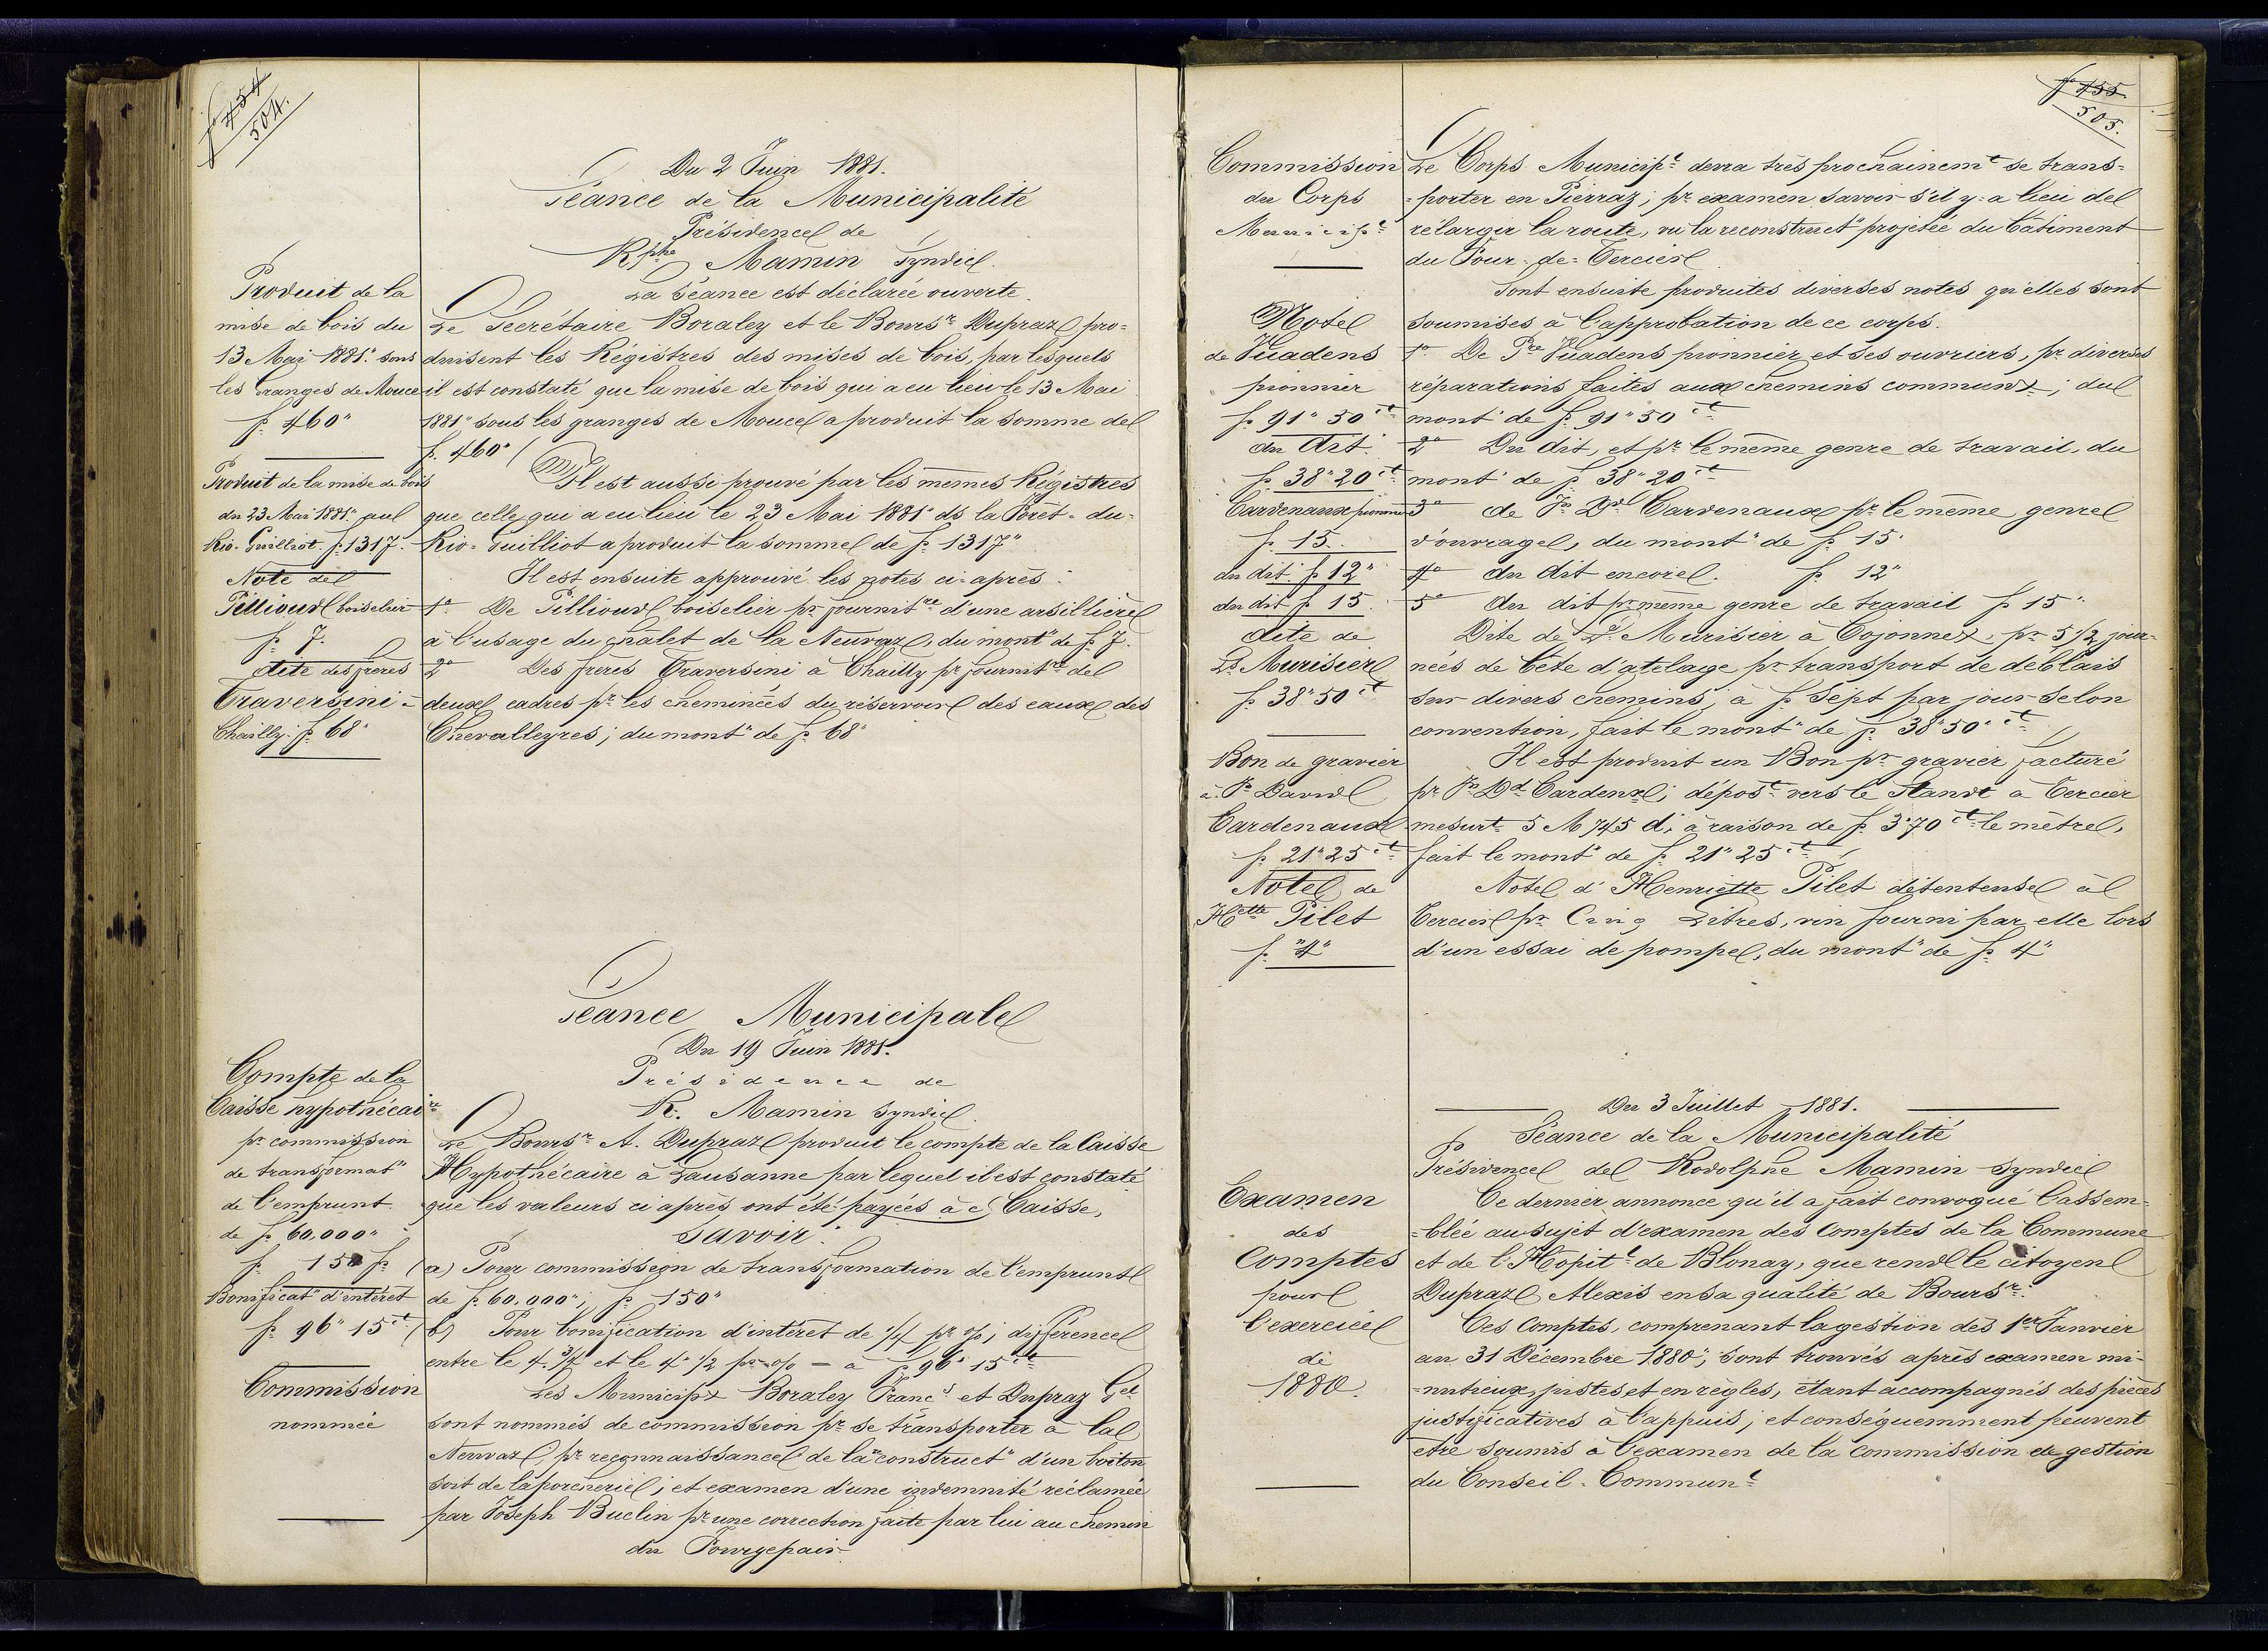 fo 454
504.
Du 2 Juin 1881.
Séance de la Municipalité
Présidence de
Rphe Mamin Syndic.
La Séance est déclarée ouverte.
Produit de la
mise de bois du
13 Mai 1881" sous
les Granges de Mouce
f. 460"
Le Secrétaire Boraley et le Boursr Dupraz pro=
duisent les Régistres des mises de bois, par lesquels
il est constaté que la mise de bois qui a eu lieu le 13 Mai
1881" sous les granges de Mouce a produit la somme de
f. 460"/
Produit de la mise de bois
du 23 Mai 1881" au
Rio-Guilliot. f. 1317.
Il est aussi prouvé par les mêmes Régistres
que celle qui a eu lieu le 23 Mai 1881" ds la Forêt-du-
Rio-Guilliot a produit la somme de f. 1317"
Il est ensuite approuvé les notes ci-après:
Note de
Pillioud boiselier
f. 7.
1o De Pillioud boiselier pr fournitre d'une arsillière
à l'usage du chalet de la Neuvaz, du mont" de f. 7.
dite des frères
Traversini =
Chailly. f. 68"
2o Des frères Traversini à Chailly pr fournitre de
deux cadres pr les cheminées du réservoir des eaux des
Chevalleyres; du mont" de f. 68"
Séance Municipale
Du 19 Juin 1881.
Présidence de
R. Mamin Syndic.
Compte de la
Caisse hypothécaire
pr commission
de transformat"
de l'emprunt
de f. 60,000"
f. 150 f.
Le Boursr A. Dupraz produit le compte de la Caisse
Hypothécaire à Lausanne par lequel il est constaté
que les valeurs ci après ont été payées à c/ Caisse,
Savoir:
a) Pour commission de transformation de l'emprunt
de f. 60.000"; f. 150"
Bonificat" d'intérêt
f. 96" 15 ct
b) Pour bonification d'intérêt de 1/4 pr o/o; différence
entre le 4. 3/4 et le 4" 1/2 pr o/o – à f. 96" 15 ct
Commission
nommée
Les Municipx Boraley Francs et Dupraz Gel
sont nommés de commission pr se transporter à la
Neuvaz, pr reconnaissance de la "construct" d'un boiton
soit de la porcherie; et examen d'une indemnité réclamée
par Joseph Buclin pr une correction faite par lui au chemin
du Fourgepair
fo 455.
505.
Commission
du Corps
Municipl
Le Corps Municipl devra très prochainemt se trans=
=porter en Pierraz; pr examen savoir s'il y-a lieu de
rélargir la route, vu la reconstruct" projetée du bâtiment
du Four-de-Tercier
Sont ensuite produites diverses notes qu'elles sont
soumises à l'approbation de ce corps.
Note
de Vuadens
pionnier
f. 91" 50 ct
1o De Pre Vuadens pionnier et ses ouvriers, pr diverses
réparations faites aux chemins communx; du
mont" de f. 91" 50 ct
du dit.
f. 38" 20 ct
2o Du dit, et pr le même genre de travail, du
mont" de f. 38" 20 ct
Cardenaux pionnier
f. 15.
3o de Jn Dd Cardenaux pr le même genre
d'ouvrage, du mont" de f. 15.
du dit. f. 12"
4o du dit encore. f. 12"
du dit f. 15.
5o du dit pr même genre de travail f. 15"
dite de
Ls Murisier
f. 38" 50 ct
Dite de Ls Murisier à Cojonnex, pr 5 1/2 jour=
nées de bête d'atelage pr transport de déblais
sur divers chemins; à f. Sept par jour selon
convention, fait le mont" de f. 38" 50" ct
Bon de gravier
à Jn David
Cardenaux
f. 21" 25 ct
Il est produit un Bon pr gravier facturé
pr Jn Dd Cardenx; dépost vers le Stand à Tercier
mesurt 5 M 745 d; à raison de f. 3"70 ct le mètre,
fait le mont" de f. 21" 25 ct
Note de
Htte Pilet
f. "4"
Note d'Henriette Pilet détenteuse à
Tercier pr Cinq Litres, vin fourni par elle lors
d'un essai de pompe, du mont" de f. 4"
Du 3 Juillet 1881.
Séance de la Municipalité
Présidence de Rodolphe Mamin Syndic
Examen
des
Comptes
pour
l'exercice
de
1880.
Ce dernier annonce qu'il a fait convoqué l'assem=
=blée au sujet d'examen des Comptes de la Commune
et de l'Hopitl de Blonay, que rend le citoyen
Dupraz Alexis en sa qualité de Boursr.
Ces Comptes, comprenant la gestion des 1er Janvier
au 31 Décembre 1880", sont trouvés après examen mi-
=nutieux, justes et en règles, étant accompagnés des pièces
justificatives à l'appuis; et conséquemment peuvent
être soumis à l'examen de la commission de gestion
du Conseil-Communl